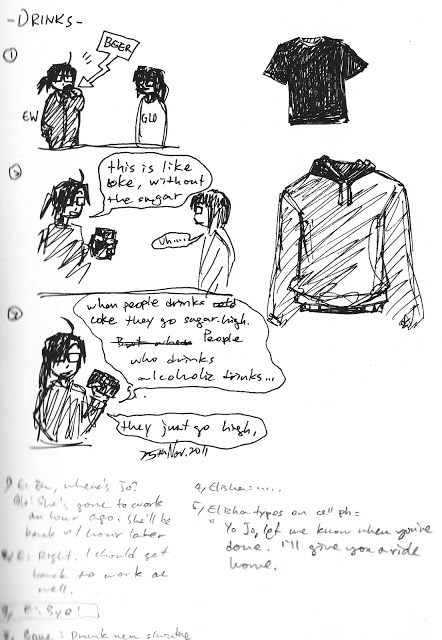 -DRINKS-
1
BEER
EW
GLO
2
this is like
coke, without
the sugar
Uh....
3
when people drinks
coke they go sugar-high.
But when People
who drinks
alcoholic drinks...
they just go high,
25th Nov. 2011
E: Em, where's Jo?
Glo: She's gone to work
an hour ago. She'll be
back w/ hour later
E: Right. I should get
back to work as
well.
3, E: Bye!
4, Elisha=.....
5, Elisha types on cell ph=
"Yo Jo, let we know when you're
done. I'll give you a ride
home.
= Drunk men